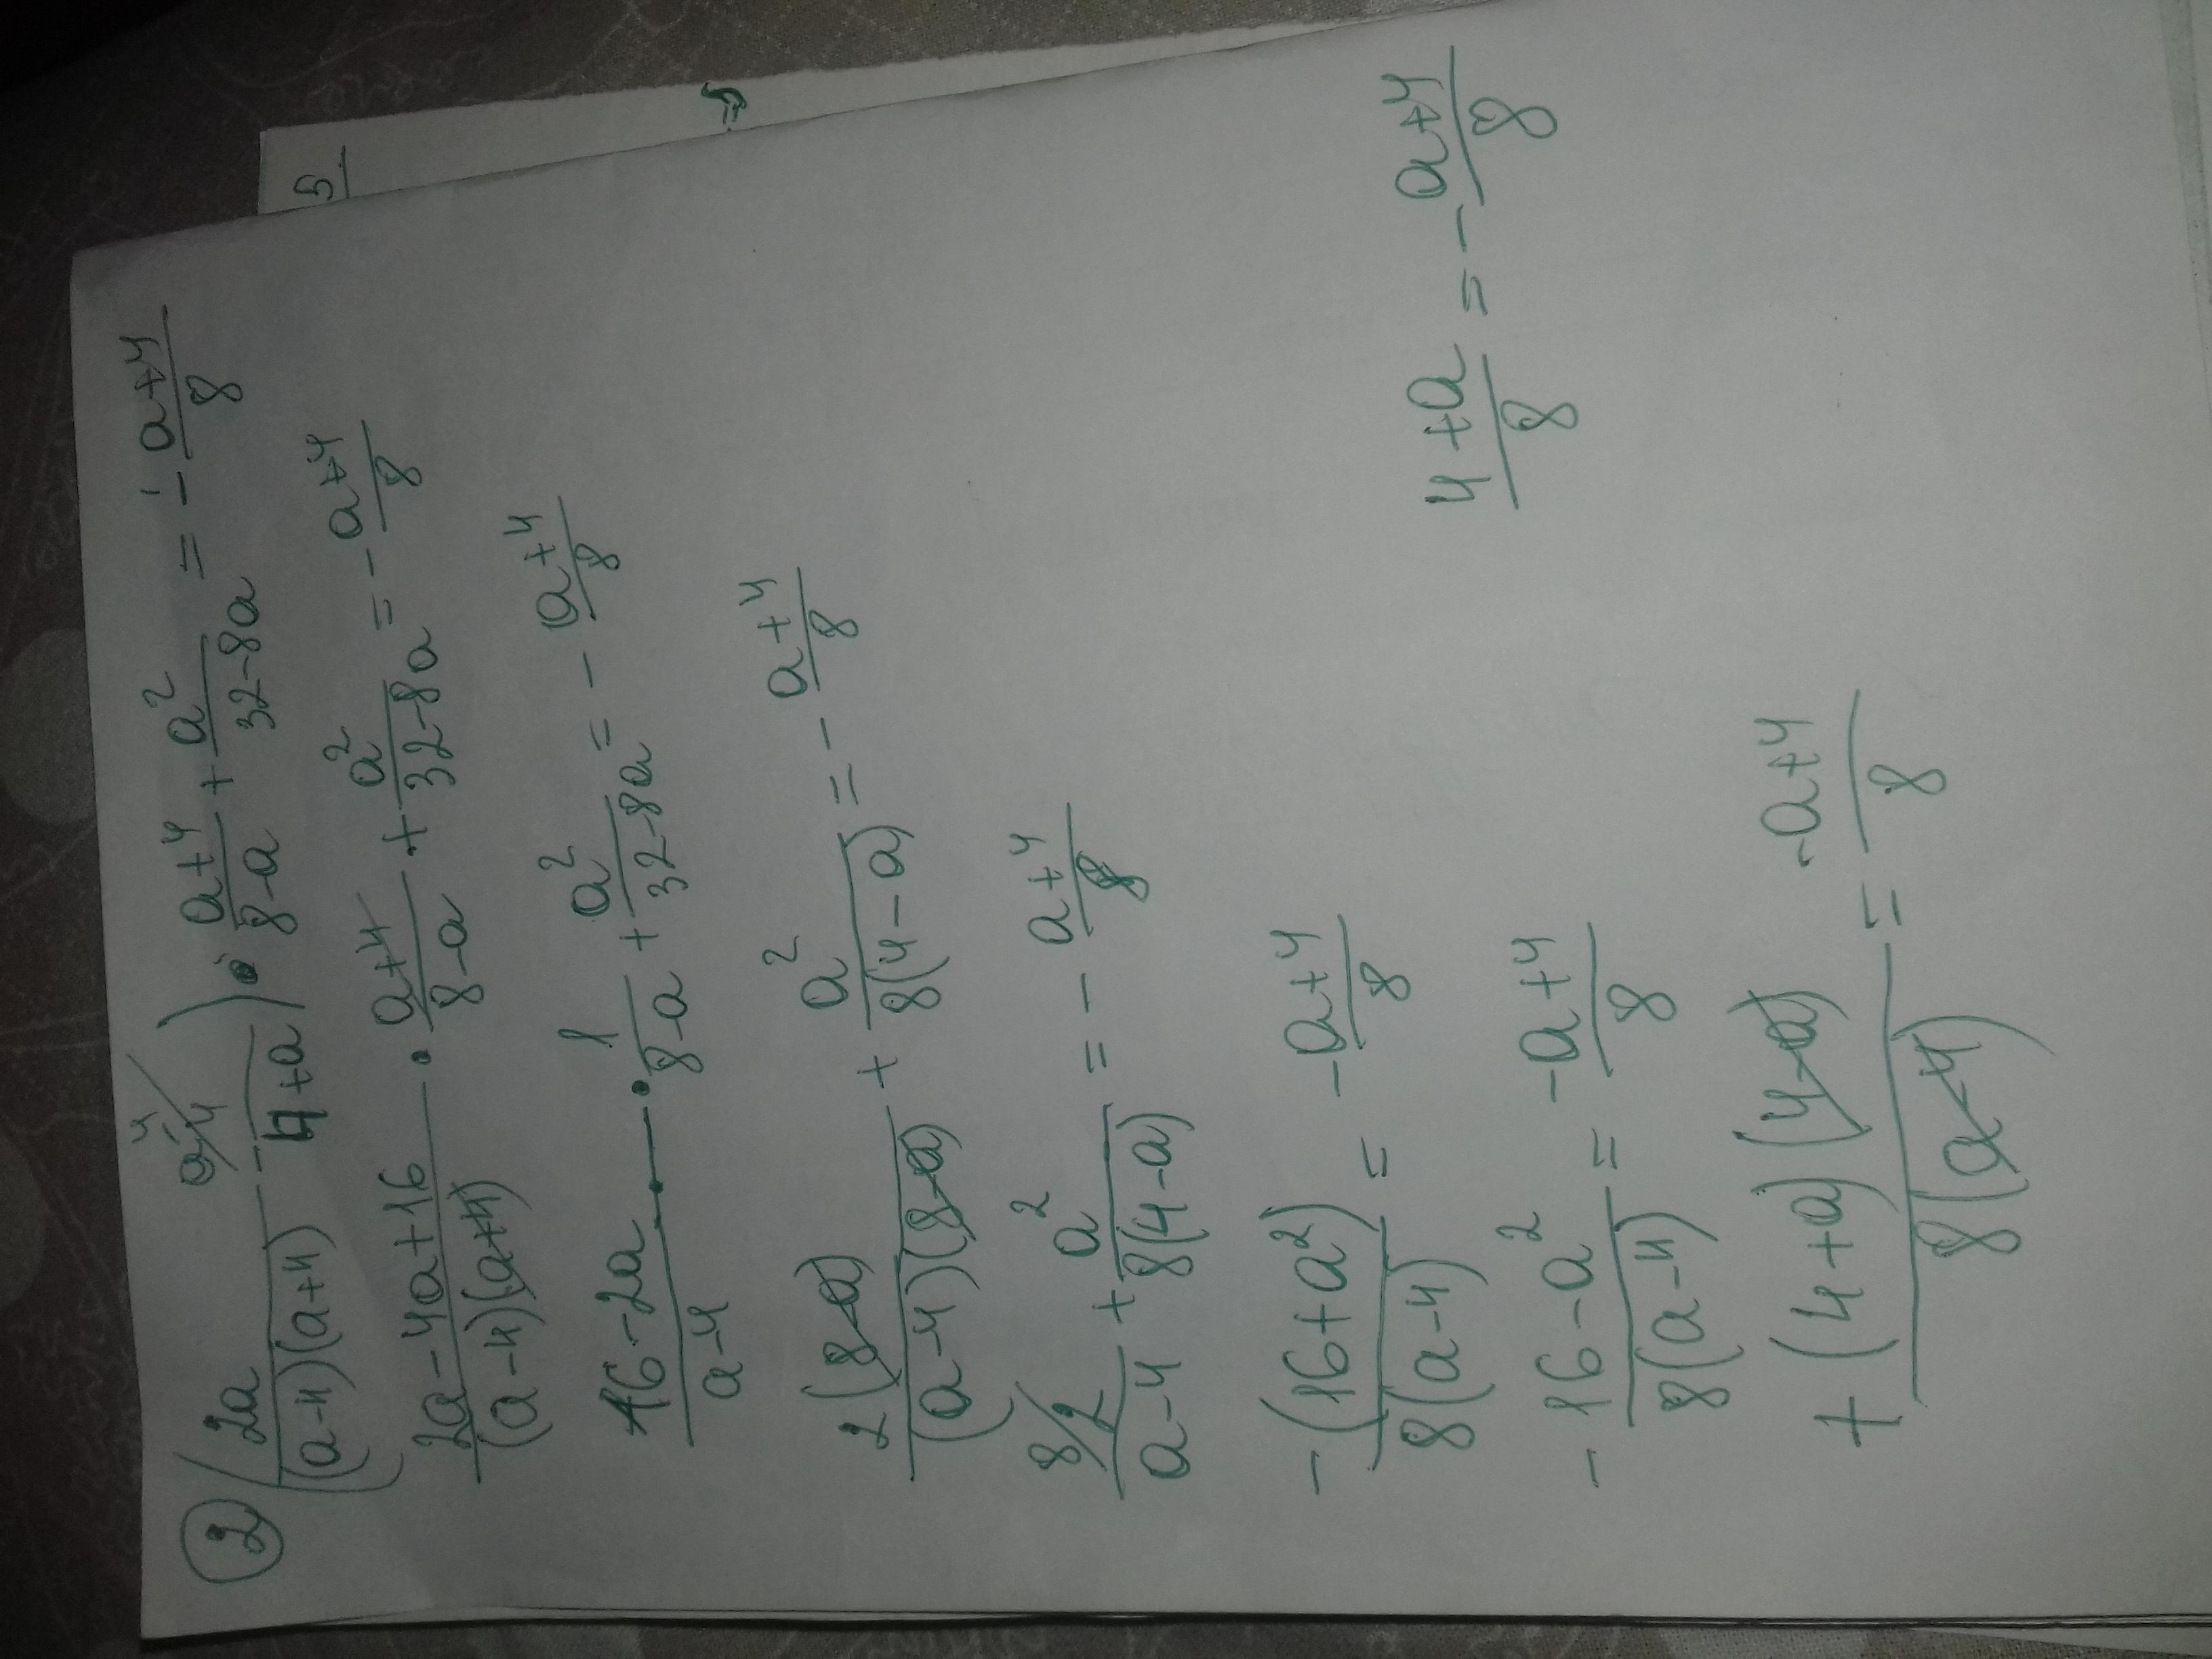 ② (2a/((a-4)(a+4)) - 4/(4+a)) · (a+4)/(8-a) + a²/(32-8a) = - (a+4)/8
(2a-4a+16)/((a-4)(a+4)) · (a+4)/(8-a) + a²/(32-8a) = - (a+4)/8
(16-2a)/(a-4) · 1/(8-a) + a²/(32-8a) = - (a+4)/8
2(8-a)/((a-4)(8-a)) + a²/(8(4-a)) = - (a+4)/8
8/ 2/(a-4) + a²/(8(4-a)) = - (a+4)/8
-(16+a²)/(8(a-4)) = -(a+4)/8
-16-a²/(8(a-4)) = -(a+4)/8
+(4+a)(4-a)/(8(a-4)) = -(a+4)/8
(4+a)/8 = -(a+4)/8
5
=